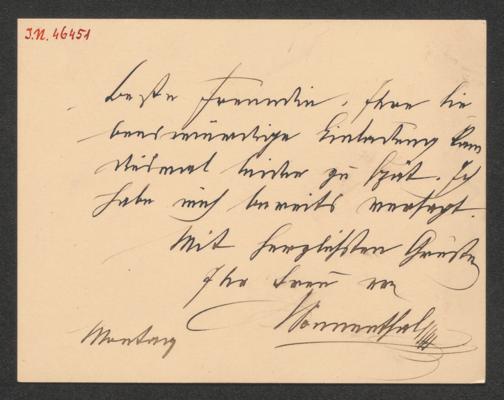 I.N. 46451
Beste Freundin, Ihre lie
benswürdige Einladung kam
diesmal leider zu spät. Ich
habe mich bereits versagt.
Mit herzlichsten Grüßen
Ihr treu
Sonnenthal
Montag